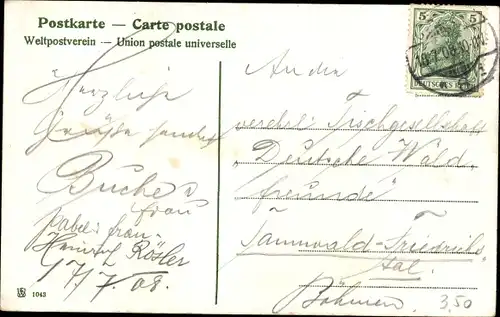 Postkarte — Carte postale
Weltpostverein — Union postale universelle
5 5
DEUTSCHES REICH
An die
Herzliche
Grüße sendet
verehrl. Tischgesellschaft
"Deutsche Wald
Buche u
Frau
freunde"
Heinrich Rösler
17/7.08.
Tannwald-Friedrichs
tal.
Böhmen
3,50
1043